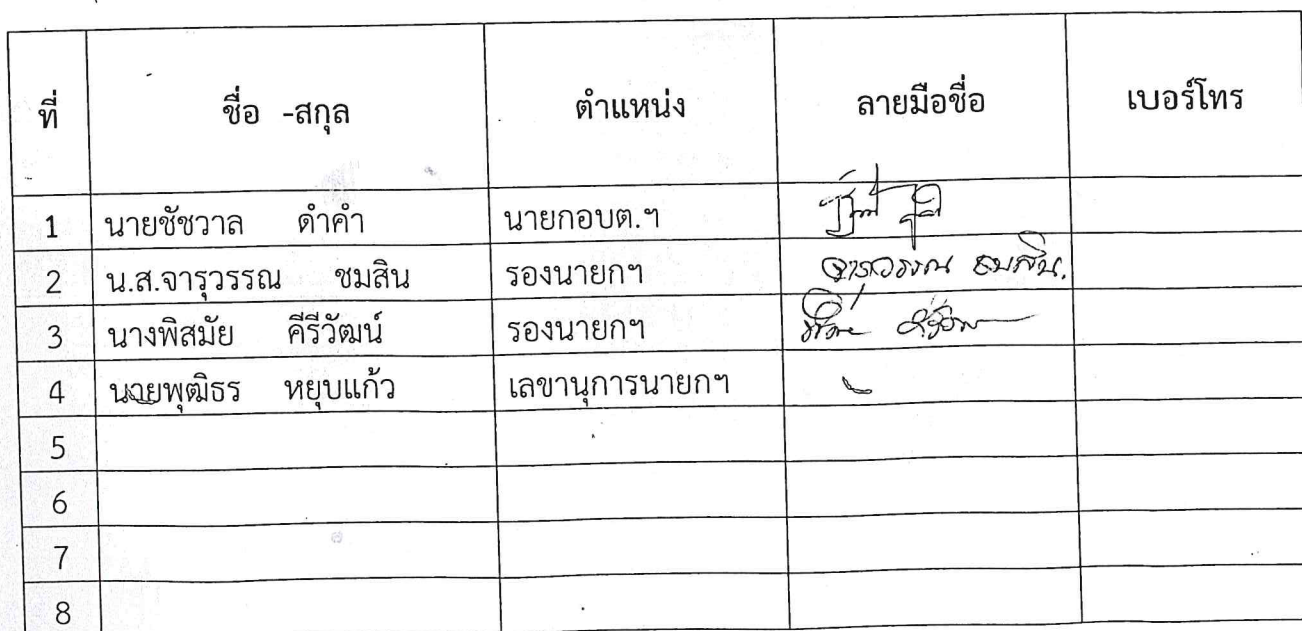 ที่ ชื่อ -สกุล ตำแหน่ง ลายมือชื่อ เบอร์โทร
1 นายชัชวาล ดำคำ นายกอบต.ฯ
2 น.ส.จารุวรรณ ชมสิน รองนายกฯ จารุวรรณ ชมสิน.
3 นางพิสมัย คีรีวัฒน์ รองนายกฯ
4 นายพุฒิธร หยุบแก้ว เลขานุการนายกฯ
5
6
7
8